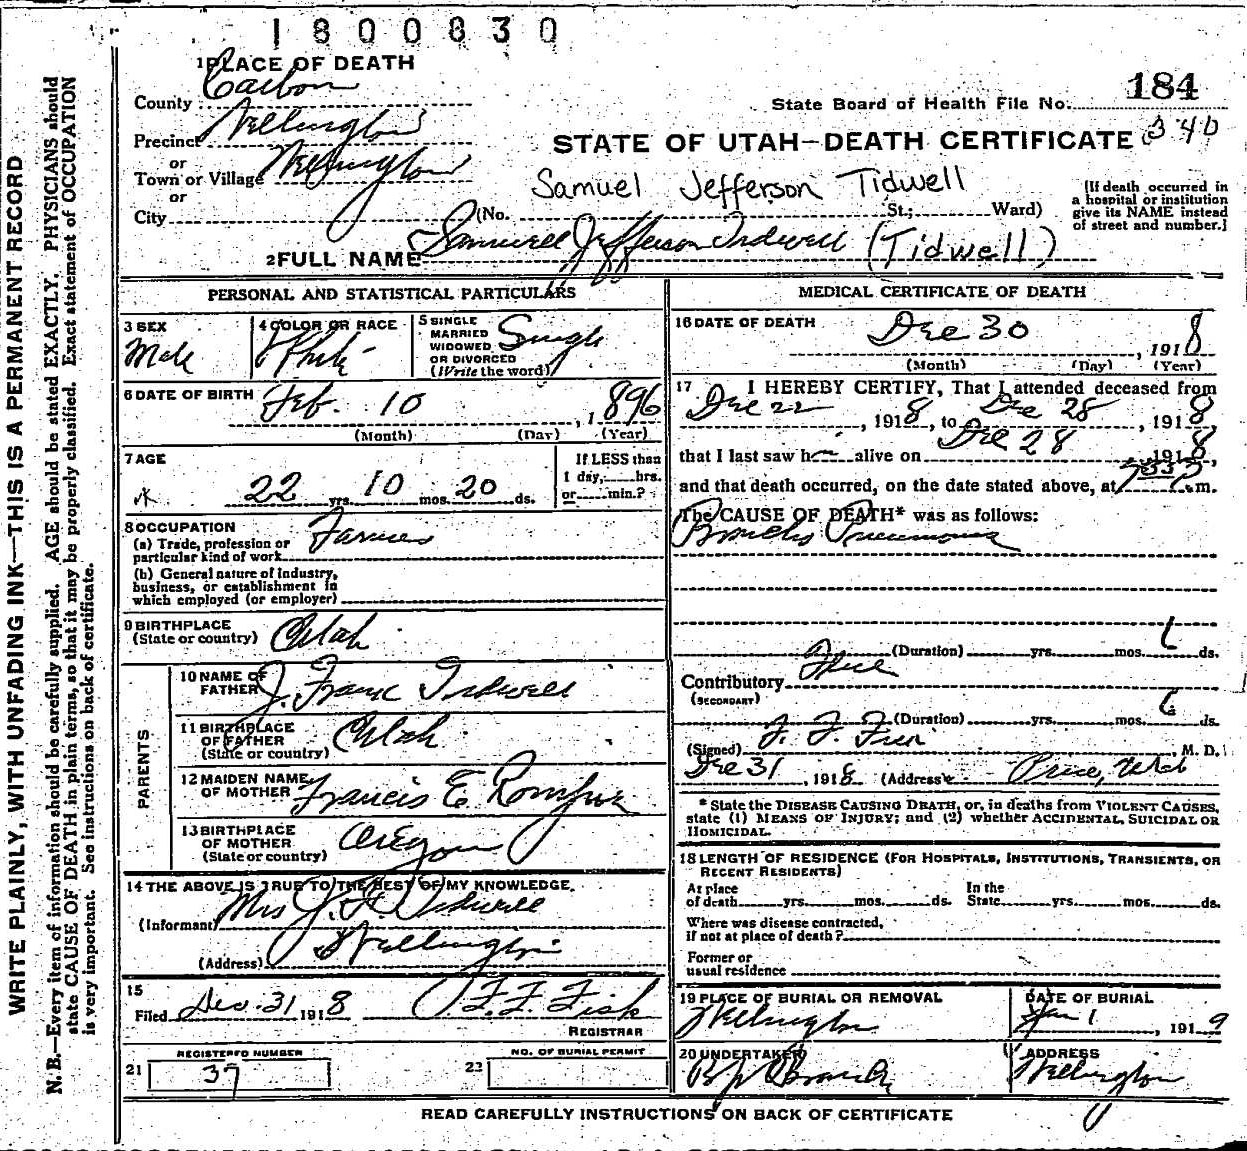 1800830
1 PLACE OF DEATH
184
County Carbon
State Board of Health File No.
Precinct Wellington
STATE OF UTAH—DEATH CERTIFICATE 340
or
Town or Village Wellington
Samuel Jefferson Tidwell
or
City (No. St.; Ward)
[If death occurred in
a hospital or institution
give its NAME instead
of street and number.]
2 FULL NAME Samuell Jefferson Tidwell (Tidwell)
PERSONAL AND STATISTICAL PARTICULARS
3 SEX Male
4 COLOR OR RACE White
5 SINGLE
MARRIED
WIDOWED
OR DIVORCED
(Write the word) Single
6 DATE OF BIRTH Feb. 10, 1896
(Month) (Day) (Year)
7 AGE
22 yrs. 10 mos. 20 ds.
If LESS than
1 day, hrs.
or min.?
8 OCCUPATION
(a) Trade, profession or
particular kind of work Farmer
(b) General nature of industry,
business, or establishment in
which employed (or employer)
9 BIRTHPLACE
(State or country) Utah
PARENTS
10 NAME OF
FATHER J. Frank Tidwell
11 BIRTHPLACE
OF FATHER
(State or country) Utah
12 MAIDEN NAME
OF MOTHER Francis E
13 BIRTHPLACE
OF MOTHER
(State or country) Oregon
14 THE ABOVE IS TRUE TO THE BEST OF MY KNOWLEDGE.
(Informant) Mrs J. F. Tidwell
(Address) Wellington
15
Filed Dec. 31 1918
Fisk
REGISTRAR
REGISTERED NUMBER
21 37
NO. OF BURIAL PERMIT
22
MEDICAL CERTIFICATE OF DEATH
16 DATE OF DEATH Dec 30, 1918
(Month) (Day) (Year)
17 I HEREBY CERTIFY, That I attended deceased from
Dec 22, 1918, to Dec 28, 1918,
that I last saw h alive on Dec 28, 1918,
and that death occurred, on the date stated above, at m.
The CAUSE OF DEATH* was as follows:
Broncho Pneumonia
(Duration) yrs. mos. ds.
Contributory Flue
(SECONDARY)
(Duration) yrs. mos. 6 ds.
(Signed) , M. D.
Dec 31, 1918 (Address) Price, Utah
* State the DISEASE CAUSING DEATH, or, in deaths from VIOLENT CAUSES,
state (1) MEANS OF INJURY; and (2) whether ACCIDENTAL, SUICIDAL OR
HOMICIDAL.
18 LENGTH OF RESIDENCE (FOR HOSPITALS, INSTITUTIONS, TRANSIENTS, OR
RECENT RESIDENTS)
At place
of death yrs. mos. ds.
In the
State yrs. mos. ds.
Where was disease contracted,
if not at place of death?
Former or
usual residence
19 PLACE OF BURIAL OR REMOVAL
Wellington
DATE OF BURIAL
Jan 1, 1919
20 UNDERTAKER
ADDRESS
Wellington
READ CAREFULLY INSTRUCTIONS ON BACK OF CERTIFICATE
WRITE PLAINLY, WITH UNFADING INK—THIS IS A PERMANENT RECORD
N. B.—Every item of information should be carefully supplied. AGE should be stated EXACTLY. PHYSICIANS should
state CAUSE OF DEATH in plain terms, so that it may be properly classified. Exact statement of OCCUPATION
is very important. See instructions on back of certificate.